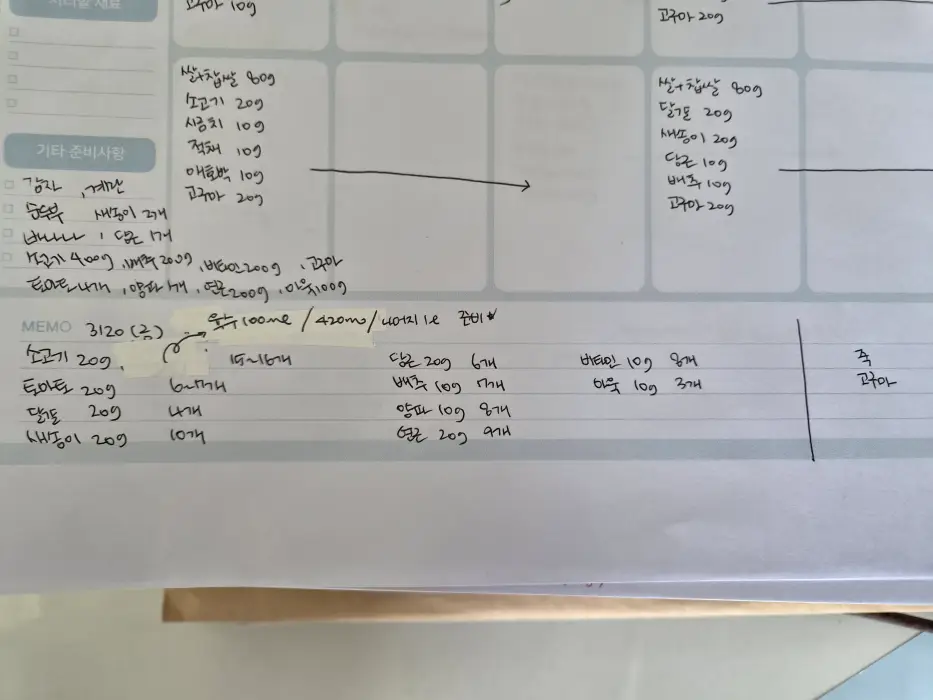 고구마 10g
고구마 20g
쌀+찹쌀 80g
소고기 20g
시금치 10g
적채 10g
애호박 10g
고구마 20g
쌀+찹쌀 80g
닭고기 20g
새송이 20g
당근 10g
배추 10g
고구마 20g
기타·준비사항
감자 , 계란
순두부 새송이 2개
바나나 , 당근 1개
소고기 400g , 배추 200g , 비타민 200g , 고구마
토마토 4개 , 양파 1개 , 연근 200g , 아욱 100g
MEMO 3/20 (금) 육수 100ml / 420ml / 나머지 1l 준비
소고기 20g , 15~16개
토마토 20g 6~7개
닭고기 20g 4개
새송이 20g 10개
당근 20g 6개
배추 10g 7개
양파 10g 8개
연근 20g 9개
비타민 10g 8개
아욱 10g 3개
죽
고구마